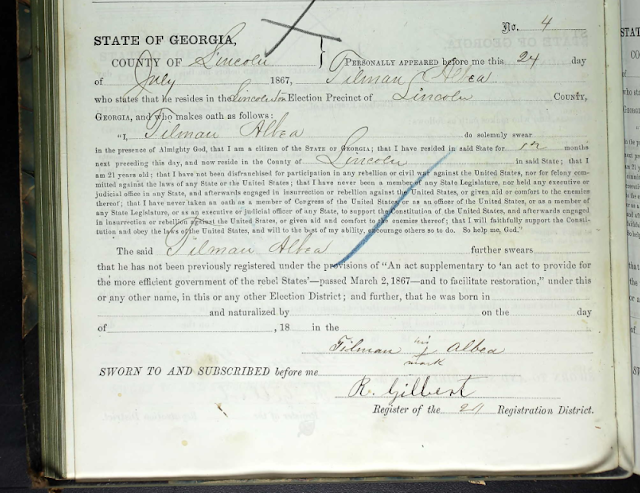 No. 4
STATE OF GEORGIA,
COUNTY OF Lincoln } PERSONALLY APPEARED before me this 24 day
of July 1867, Tilman Albea
who states that he resides in the Lincolnton Election Precinct of Lincoln COUNTY,
GEORGIA, and who makes oath as follows:
"I, Tilman Albea do solemnly swear
in the presence of Almighty God, that I am a citizen of the STATE OF GEORGIA; that I have resided in said State for 12 months
next preceding this day, and now reside in the County of Lincoln in said State; that I
am 21 years old; that I have not been disfranchised for participation in any rebellion or civil war against the United States, nor for felony com-
mitted against the laws of any State or the United States; that I have never been a member of any State Legislature, nor held any executive or
judicial office in any State, and afterwards engaged in insurrection or rebellion against the United States, or given aid or comfort to the enemies
thereof; that I have never taken an oath as a member of Congress of the United States, or as an officer of the United States, or as a member of
any State Legislature, or as an executive or judicial officer of any State, to support the Constitution of the United States, and afterwards engaged
in insurrection or rebellion against the United States, or given aid and comfort to the enemies thereof; that I will faithfully support the Consti-
tution and obey the laws of the United States, and will to the best of my ability, encourage others so to do. So help me, God."
The said Tilman Albea further swears
that he has not been previously registered under the provisions of "An act supplementary to 'an act to provide for
the more efficient government of the rebel States'—passed March 2, 1867—and to facilitate restoration," under this
or any other name, in this or any other Election District; and further, that he was born in
and naturalized by on the day
of , 18 in the
Tilman his Albea
mark
SWORN TO AND SUBSCRIBED before me
R. Gilbert
Register of the 29 Registration District.